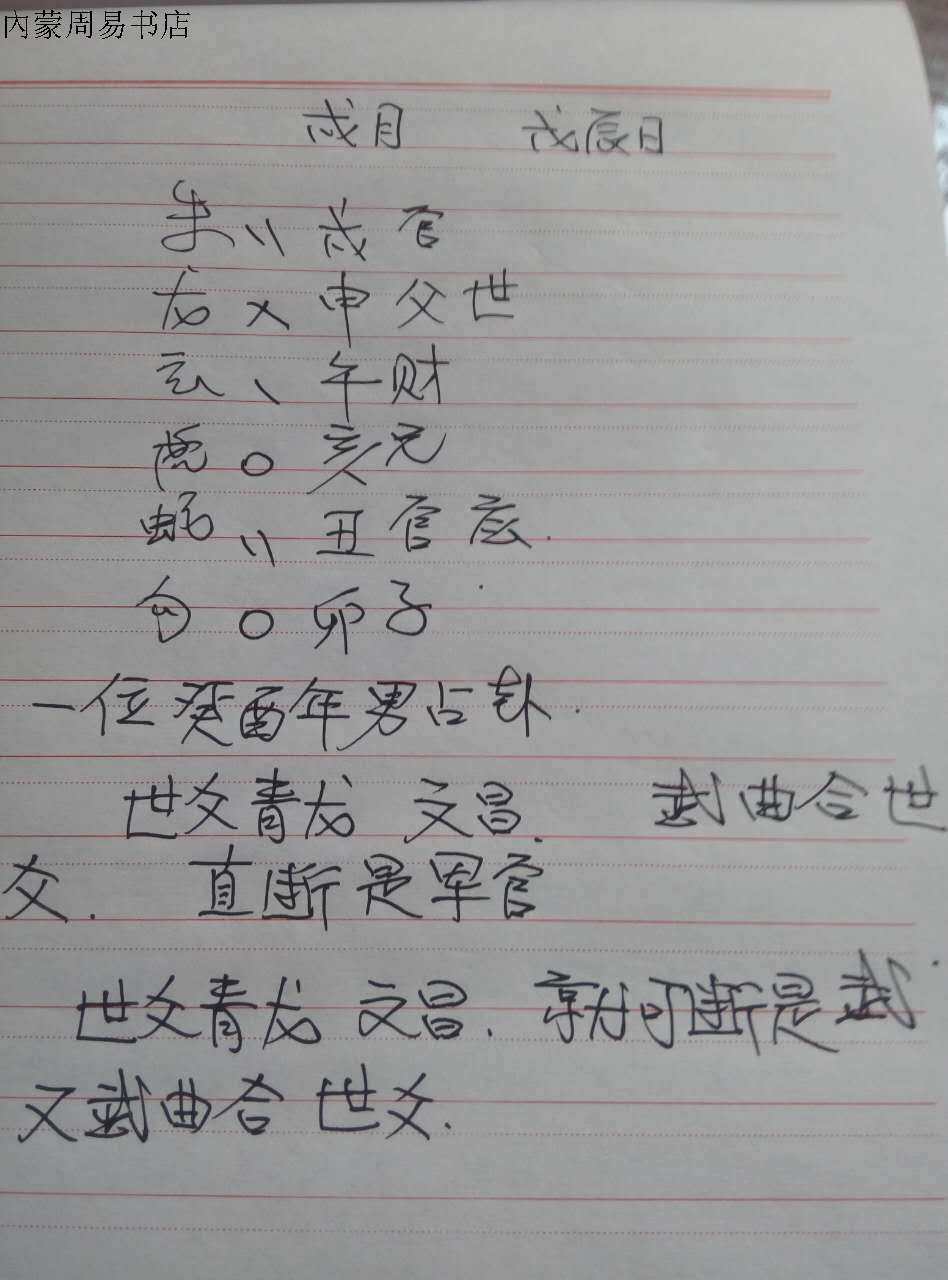 內蒙周易书店
戌月 戊辰日
朱 〃 戌官
龙 × 申父世
玄 、 午财
虎 〇 亥兄
蛇 〃 丑官应.
勾 〇 卯子
一位癸酉年男占卦.
世爻青龙 文昌. 武曲合世
爻. 直断是军官
世爻青龙 文昌. 就可断是武
又武曲合 世爻.